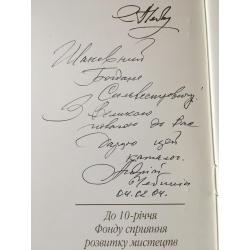 Шановний
Богдане
Сильвестрович!
З великою
повагою до Вас
дарую цей
каталог.
04.02.04.
До 10-річчя
Фонду сприяння
розвитку мистецтв